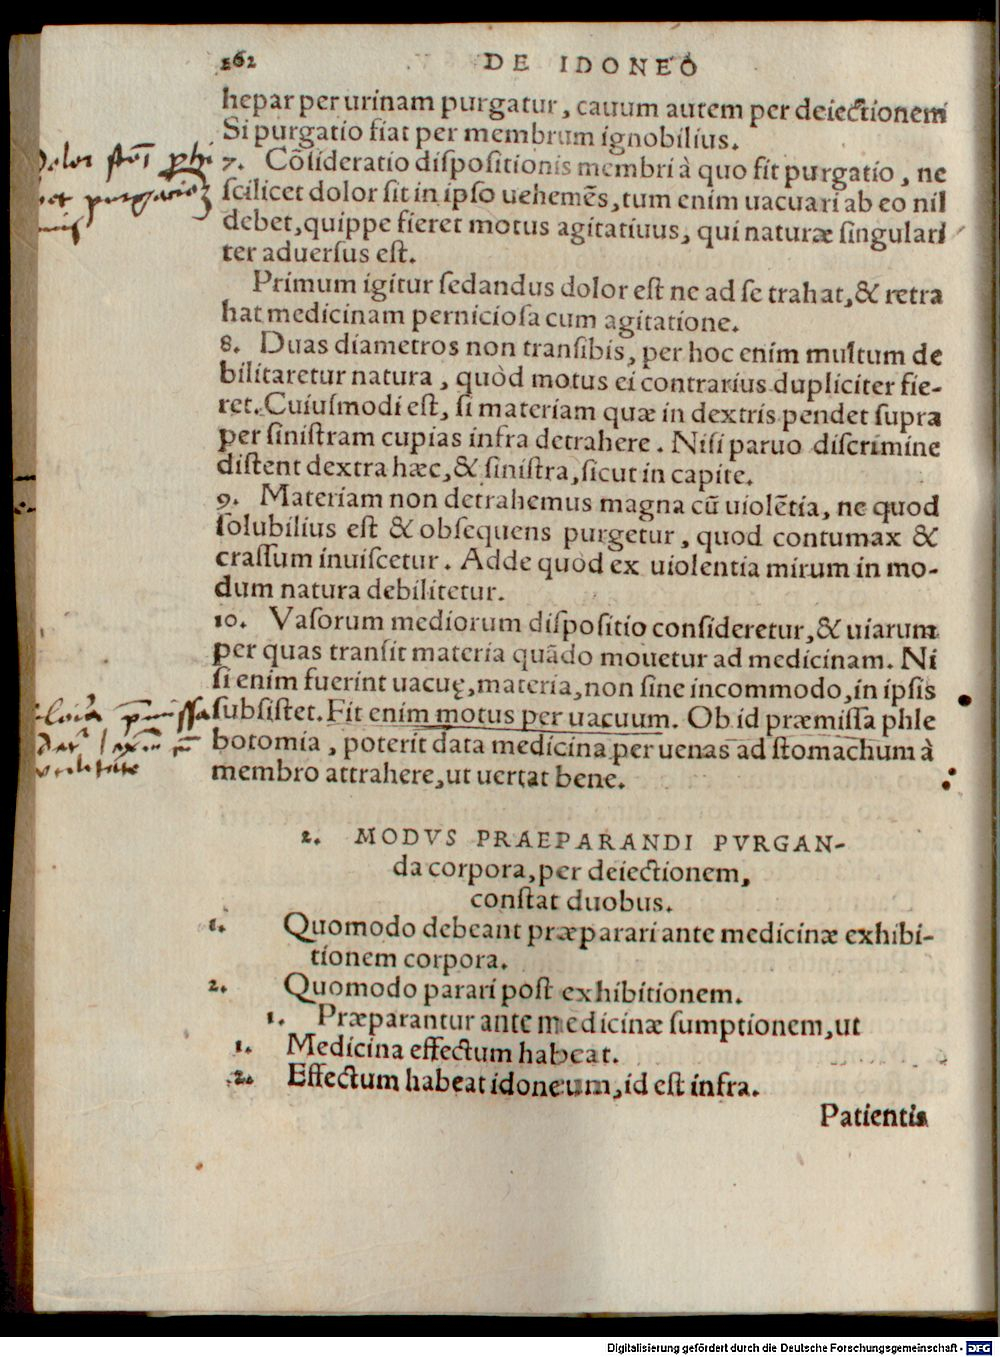 262 DE IDONEO
hepar per urinam purgatur, cauum autem per deiectionem
Si purgatio fiat per membrum ignobilius.
7. Cõsideratio dispositionis membri à quo fit purgatio, ne
scilicet dolor sit in ipso uehemẽs, tum enim uacuari ab eo nil
debet, quippe fieret motus agitatiuus, qui naturæ singulari
ter aduersus est.
Primum igitur sedandus dolor est ne ad se trahat, & retra
hat medicinam perniciosa cum agitatione.
8. Duas diametros non transibis, per hoc enim multum de
bilitaretur natura, quòd motus ei contrarius dupliciter fie-
ret. Cuiusmodi est, si materiam quæ in dextris pendet supra
per sinistram cupias infra detrahere. Nisi paruo discrimine
distent dextra hæc, & sinistra, sicut in capite.
9. Materiam non detrahemus magna cũ uiolẽtia, ne quod
solubilius est & obsequens purgetur, quod contumax &
crassum inuiscetur. Adde quòd ex uiolentia mirum in mo-
dum natura debilitetur.
10. Vasorum mediorum dispositio consideretur, & uiarum
per quas transit materia quãdo mouetur ad medicinam. Ni
si enim fuerint uacuę, materia, non sine incommodo, in ipsis
subsistet. Fit enim motus per uacuum. Ob id præmissa phle
botomia, poterit data medicina per uenas ad stomachum à
membro attrahere, ut uertat bene.
2. MODVS PRAEPARANDI PVRGAN-
da corpora, per deiectionem,
constat duobus.
1. Quomodo debeant præparari ante medicinæ exhibi-
tionem corpora.
2. Quomodo parari post exhibitionem.
1. Præparantur ante medicinæ sumptionem, ut
1. Medicina effectum habeat.
2. Effectum habeat idoneum, id est infra.
Patientis
Digitalisierung gefördert durch die Deutsche Forschungsgemeinschaft - DFG